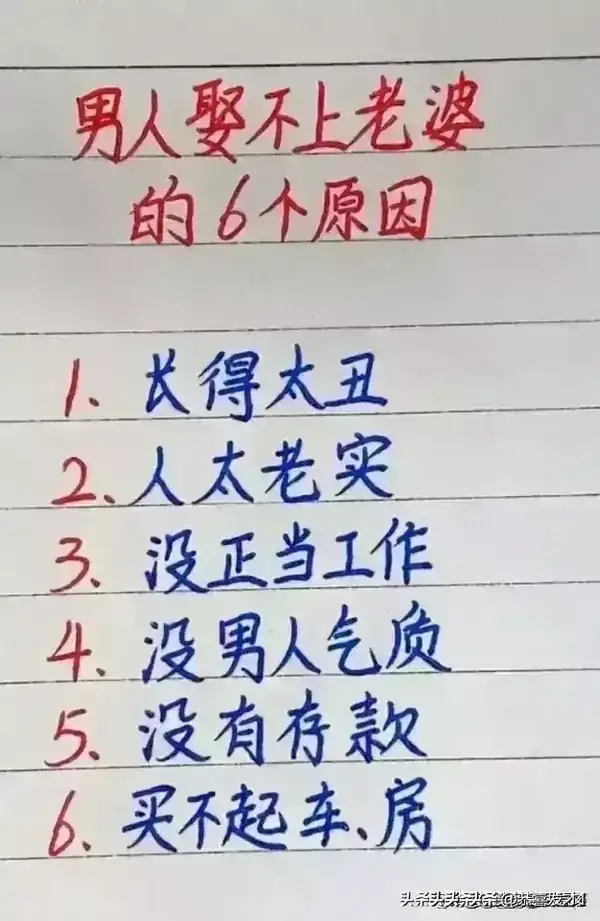 男人娶不上老婆
的6个原因
1、长得太丑
2、人太老实
3、没正当工作
4、没男人气质
5、没有存款
6、买不起车、房